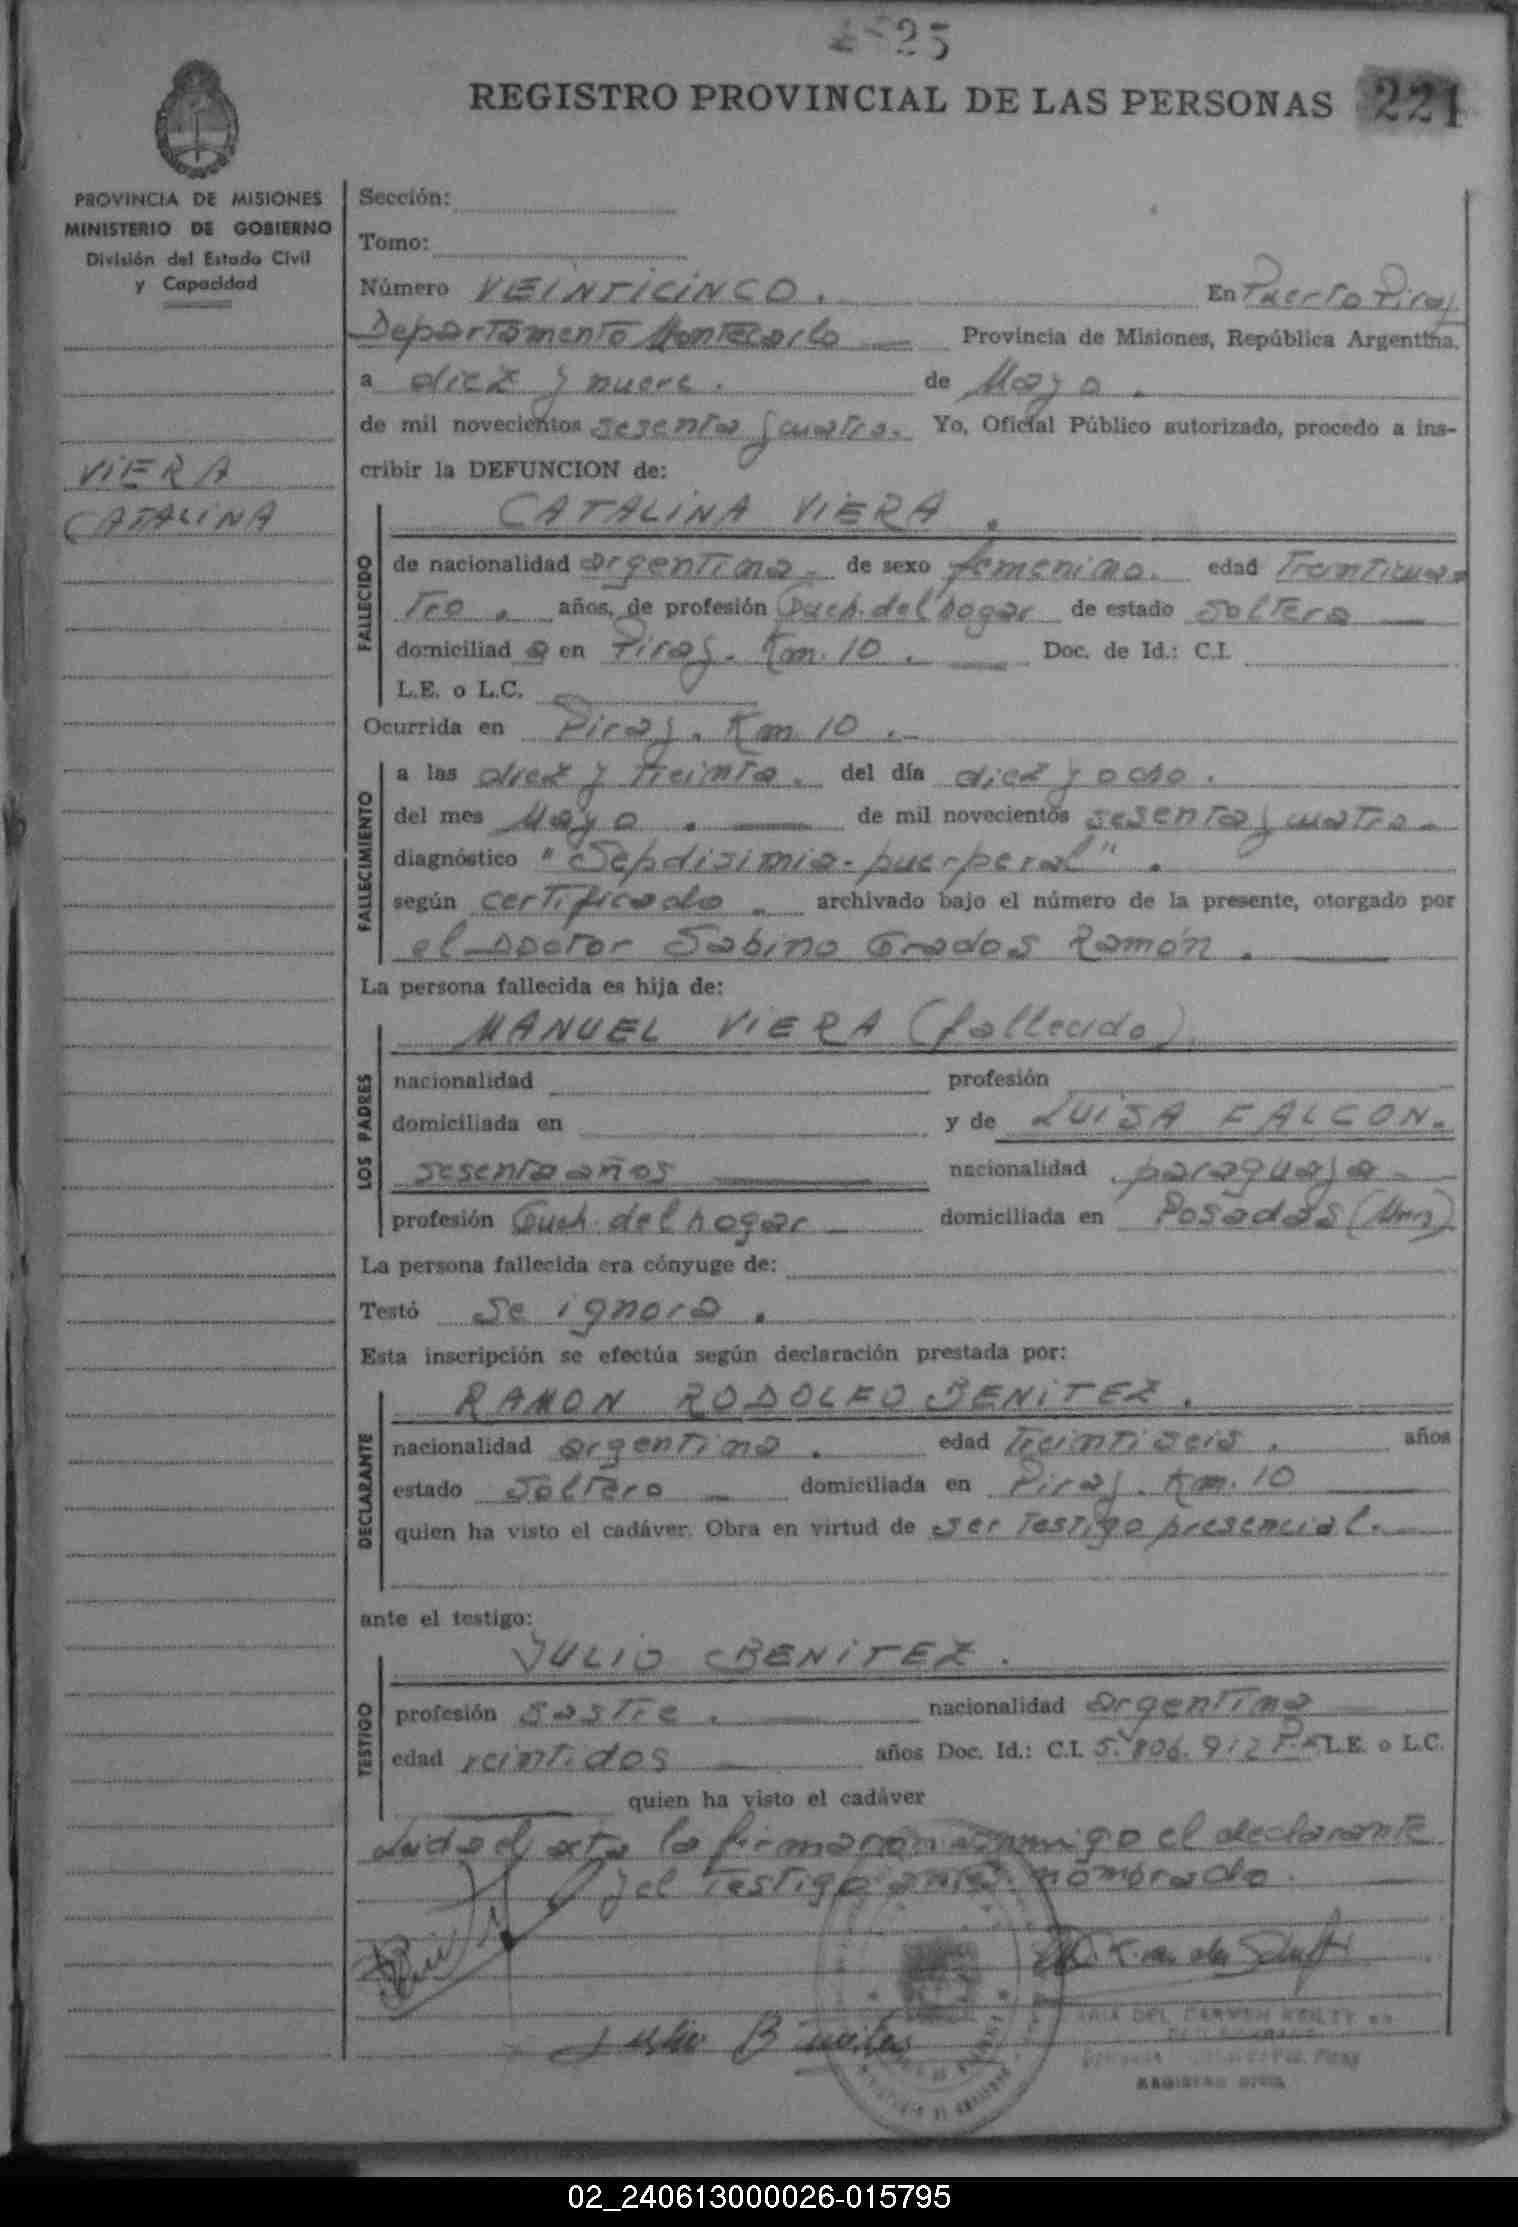 25
REGISTRO PROVINCIAL DE LAS PERSONAS 221
PROVINCIA DE MISIONES
MINISTERIO DE GOBIERNO
División del Estado Civil
y Capacidad
Sección:
Tomo:
Número VEINTICINCO. En Puerto Piray
Departamento Montecarlo Provincia de Misiones, República Argentina,
a diez y nueve. de Mayo.
de mil novecientos sesenta y cuatro. Yo, Oficial Público autorizado, procedo a ins-
VIERA
CATALINA
cribir la DEFUNCION de:
CATALINA VIERA.
FALLECIDO
de nacionalidad argentina. de sexo femenino. edad Treinticua-
tro. años, de profesión Queh. del hogar de estado Soltera
domiciliad a en Piray. Km. 10. Doc. de Id.: C.I.
L.E. o L.C.
Ocurrida en Piray. Km. 10.
FALLECIMIENTO
a las diez y treinta. del día diez y ocho.
del mes Mayo. de mil novecientos sesenta y cuatro.
diagnóstico "Sepdisimia-puerperal".
según certificado. archivado bajo el número de la presente, otorgado por
el Doctor Sabino Grados Ramón.
La persona fallecida es hija de:
LOS PADRES
MANUEL VIERA (fallecido)
nacionalidad profesión
domiciliada en y de LUISA FALCON.
sesenta años nacionalidad paraguaya
profesión Queh. del hogar domiciliada en Posadas (Mnes)
La persona fallecida era cónyuge de:
Testó se ignora.
Esta inscripción se efectúa según declaración prestada por:
DECLARANTE
RAMON RODOLFO BENITEZ.
nacionalidad argentina. edad Veintiseis. años
estado Soltero domiciliada en Piray. Km. 10
quien ha visto el cadáver. Obra en virtud de ser Testigo presencial.
ante el testigo:
TESTIGO
JULIO BENITEZ.
profesión Sastre. nacionalidad argentina
edad veintidos años Doc. Id.: C.I. 5.806.912 L.E. o L.C.
quien ha visto el cadáver
Leida el acta la firmaron conmigo el declarante
y el Testigo antes nombrado.
Julio Benitez
REGISTRO CIVIL
02_240613000026-015795